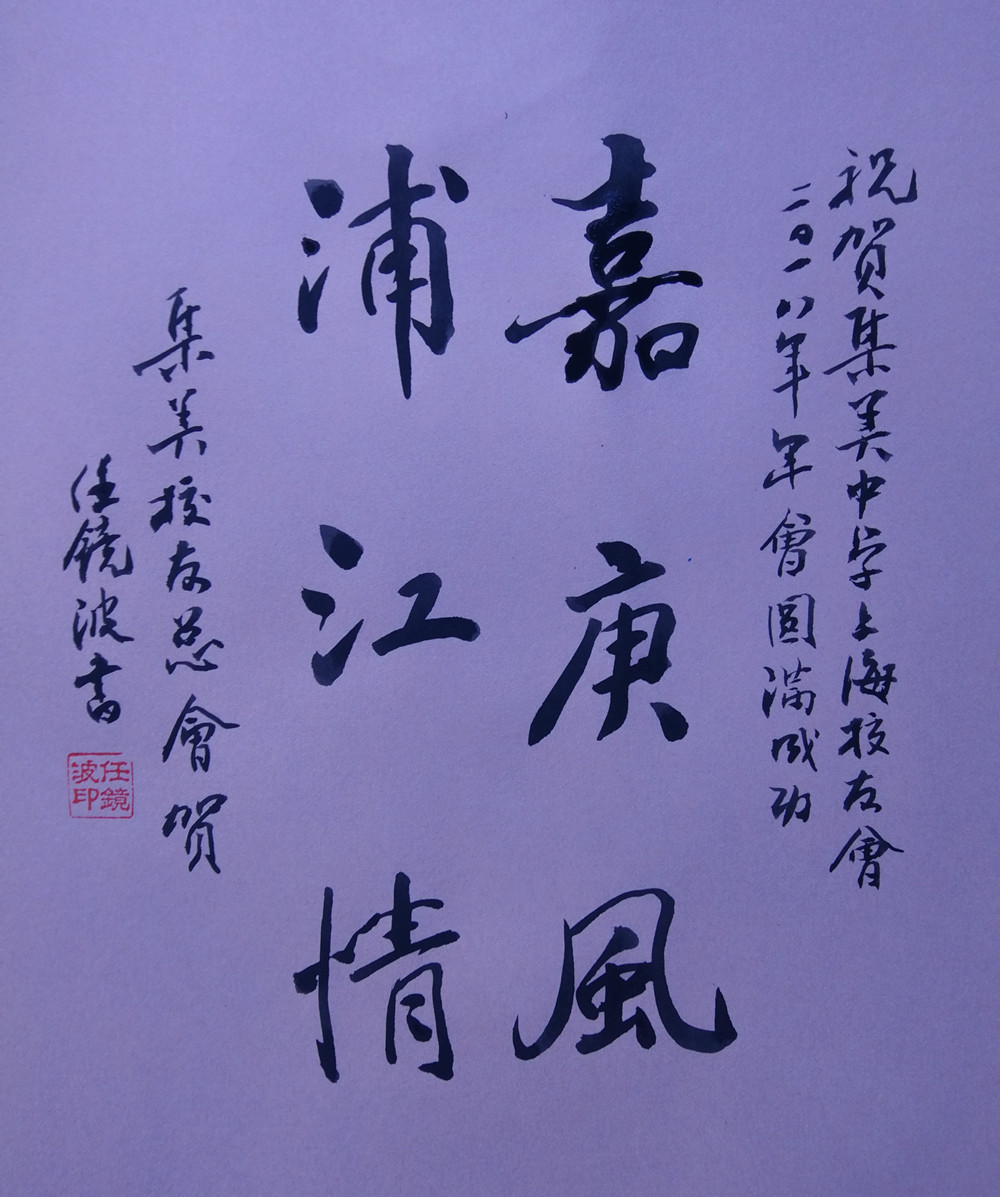 祝贺集美中学上海校友會
二〇一八年年會圆滿成功
嘉庚風
浦江情
集美校友总會贺
任镜波書
任鏡
波印